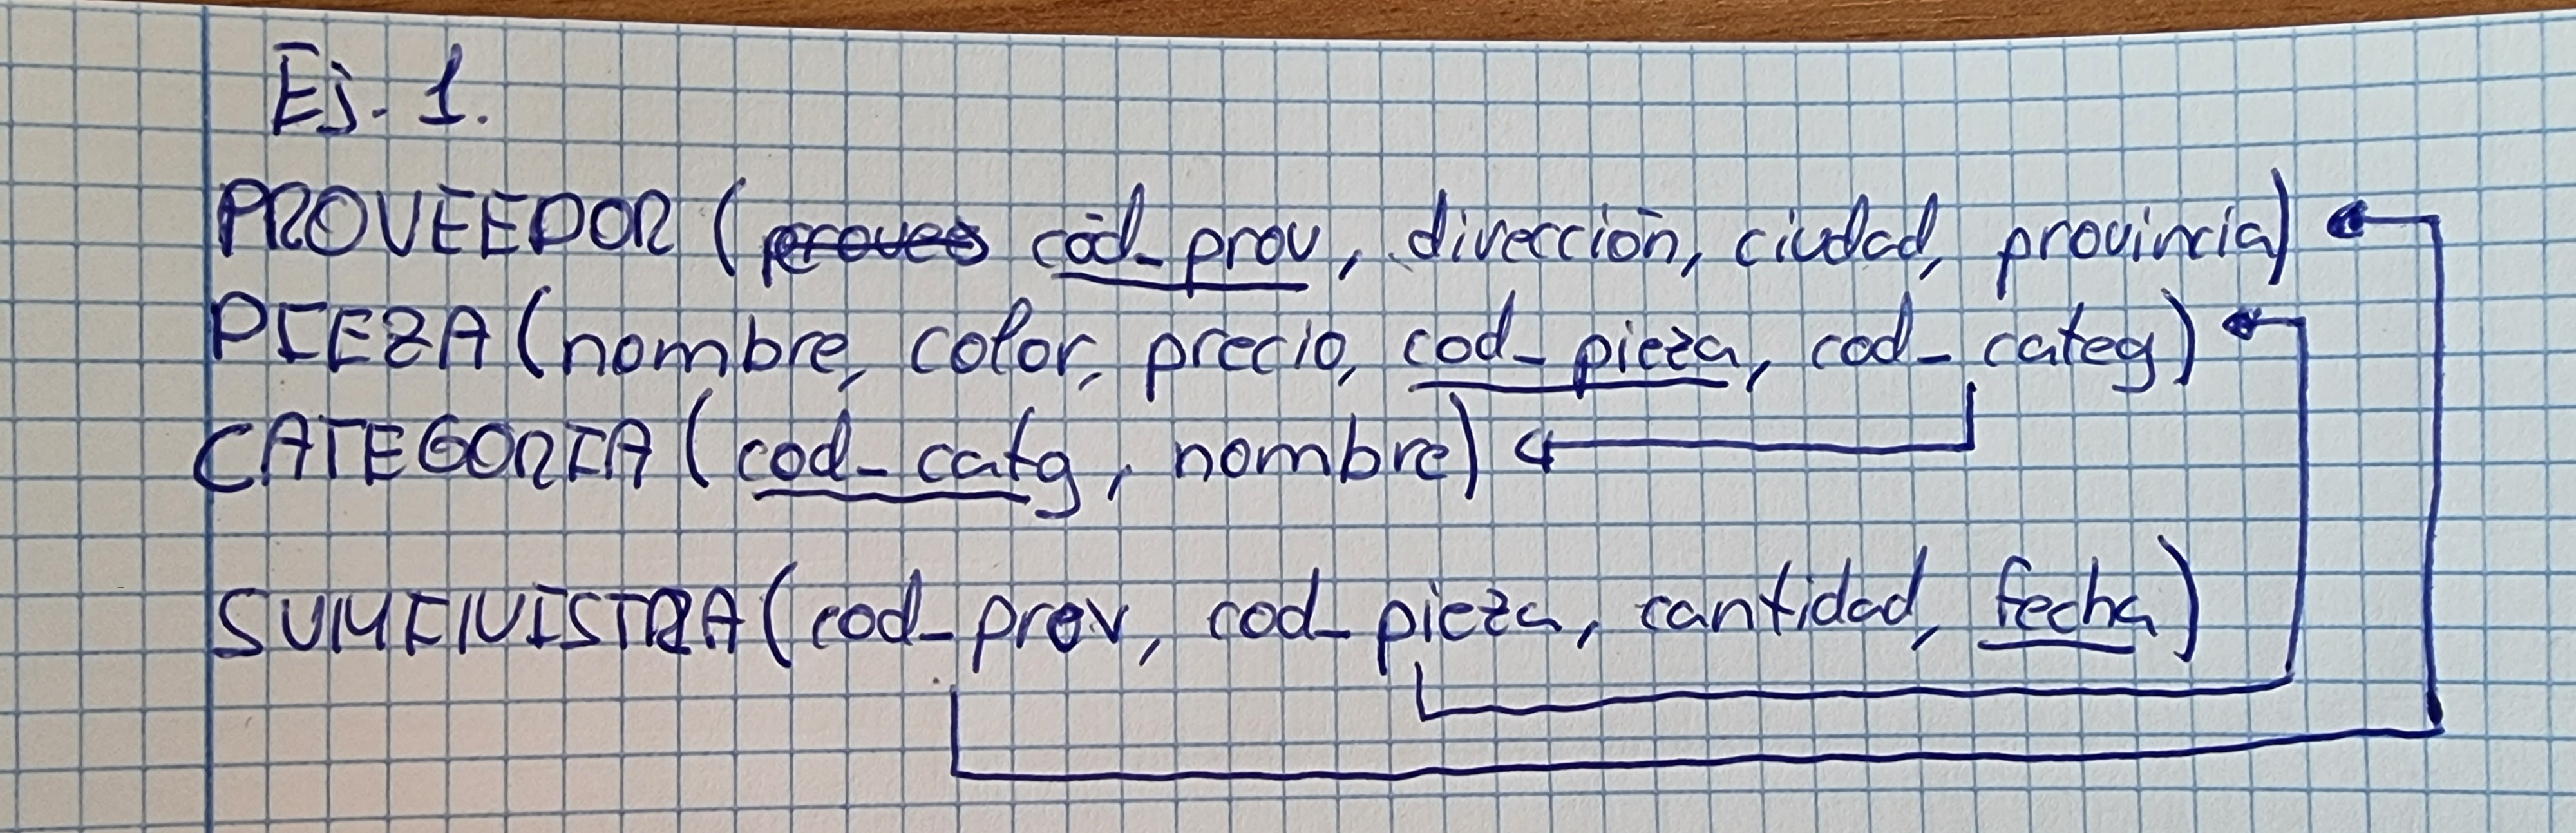 Ej. 1.
PROVEEDOR (provee cod_prov, dirección, ciudad, provincia)
PIEZA (nombre, color, precio, cod_pieza, cod_categ)
CATEGORIA (cod_catg, nombre)
SUMINISTRA (cod_prov, cod_pieza, cantidad, fecha)